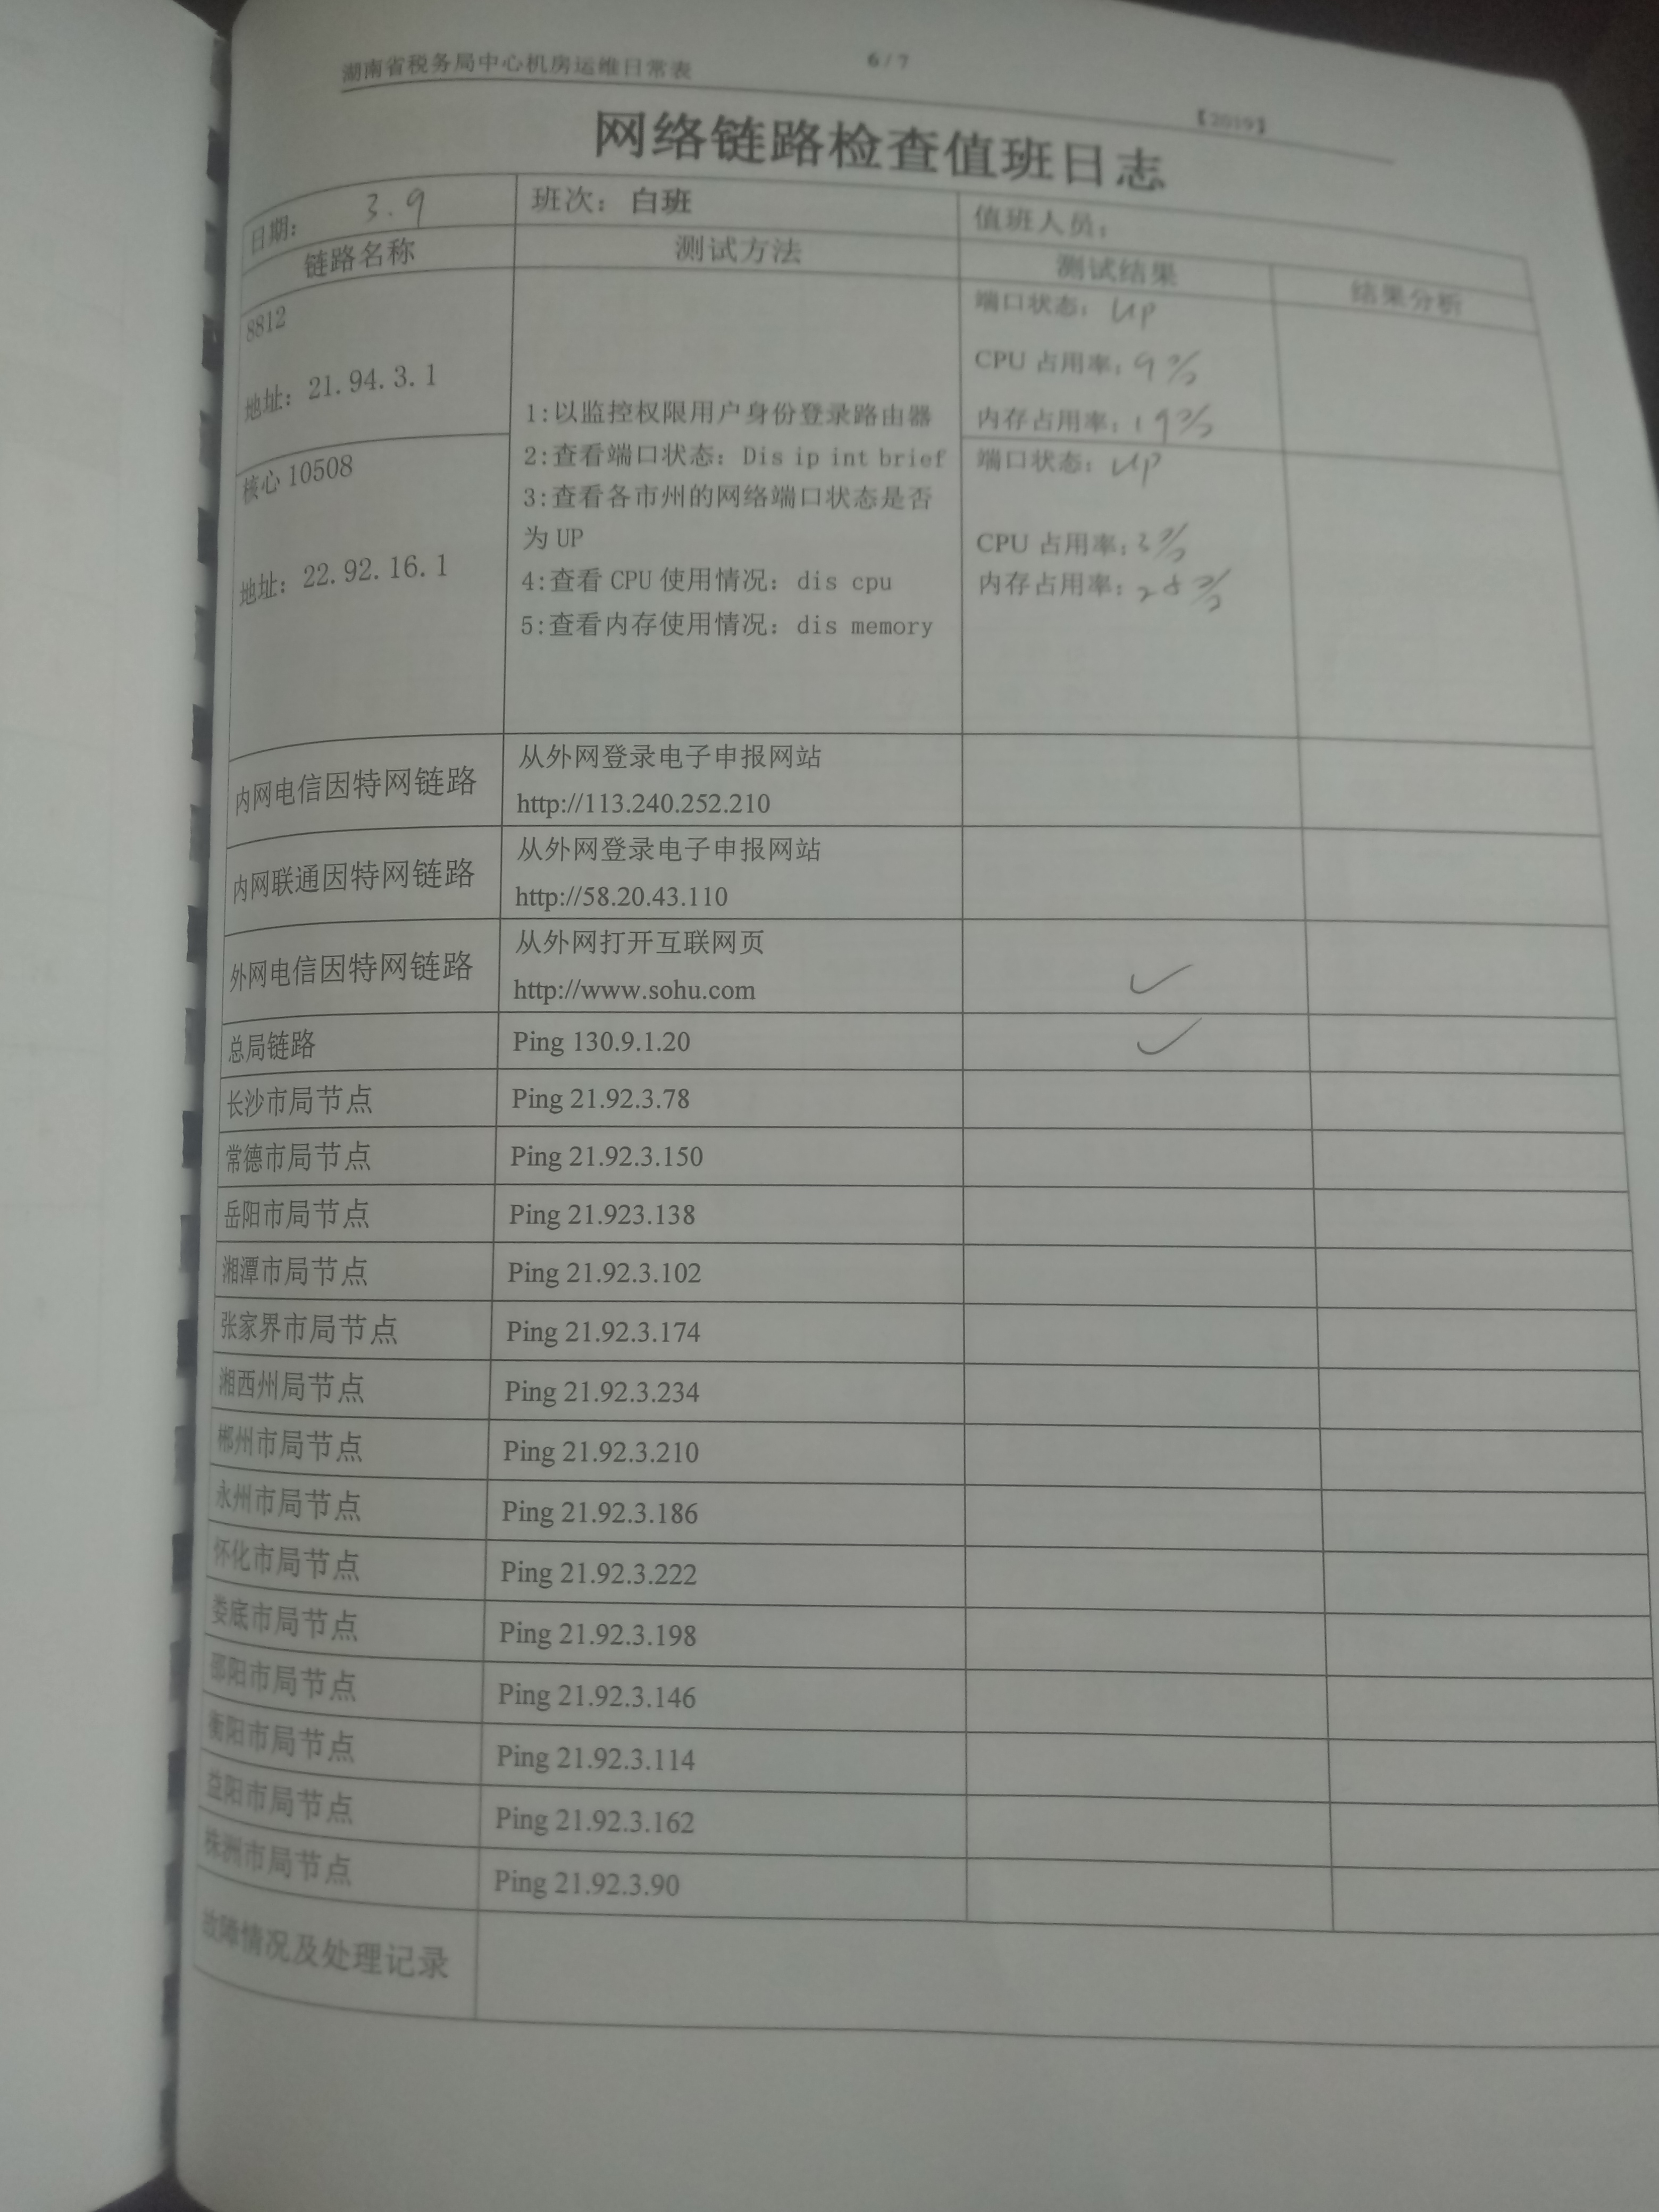 湖南省税务局中心机房运维日常表 6/7 【2019】
网络链路检查值班日志
日期: 3.9 班次：白班 值班人员：
链路名称 测试方法 测试结果 结果分析
8812
地址：21.94.3.1
核心 10508
地址：22.92.16.1
1:以监控权限用户身份登录路由器
2:查看端口状态：Dis ip int brief
3:查看各市州的网络端口状态是否
为 UP
4:查看 CPU 使用情况：dis cpu
5:查看内存使用情况：dis memory
端口状态：UP
CPU 占用率：9%
内存占用率：19%
端口状态：UP
CPU 占用率：3%
内存占用率：28%
内网电信因特网链路
从外网登录电子申报网站
http://113.240.252.210
内网联通因特网链路
从外网登录电子申报网站
http://58.20.43.110
外网电信因特网链路
从外网打开互联网页
http://www.sohu.com ✓
总局链路 Ping 130.9.1.20 ✓
长沙市局节点 Ping 21.92.3.78
常德市局节点 Ping 21.92.3.150
岳阳市局节点 Ping 21.923.138
湘潭市局节点 Ping 21.92.3.102
张家界市局节点 Ping 21.92.3.174
湘西州局节点 Ping 21.92.3.234
郴州市局节点 Ping 21.92.3.210
永州市局节点 Ping 21.92.3.186
怀化市局节点 Ping 21.92.3.222
娄底市局节点 Ping 21.92.3.198
邵阳市局节点 Ping 21.92.3.146
衡阳市局节点 Ping 21.92.3.114
益阳市局节点 Ping 21.92.3.162
株洲市局节点 Ping 21.92.3.90
故障情况及处理记录